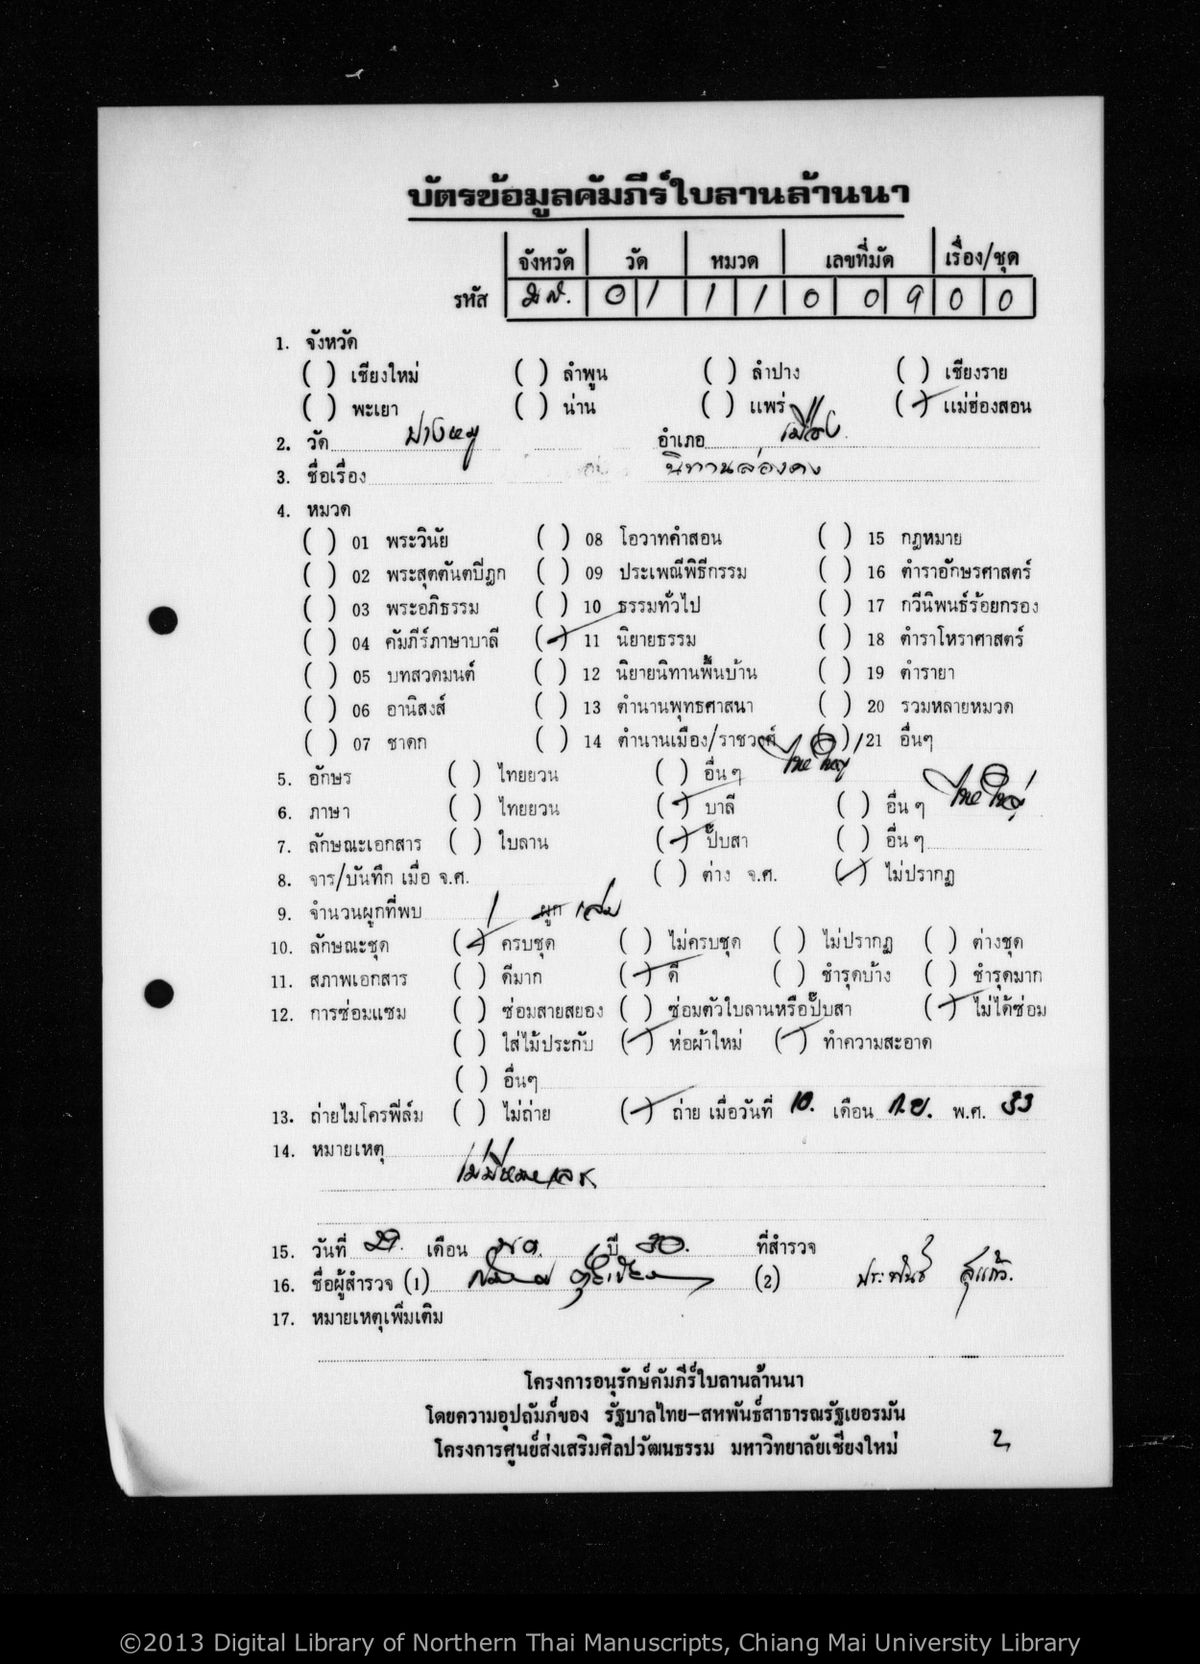 บัตรข้อมูลคัมภีร์ใบลานล้านนา
จังหวัด วัด หมวด เลขที่มัด เรื่อง/ชุด
รหัส มส. 01 11 009 00
1. จังหวัด
( ) เชียงใหม่ ( ) ลำพูน ( ) ลำปาง ( ) เชียงราย
( ) พะเยา ( ) น่าน ( ) แพร่ (/) แม่ฮ่องสอน
2. วัด ปางหมู อำเภอ เมือง
3. ชื่อเรื่อง นิทานล่องคง
4. หมวด
( ) 01 พระวินัย ( ) 08 โอวาทคำสอน ( ) 15 กฎหมาย
( ) 02 พระสุตตันตปิฎก ( ) 09 ประเพณีพิธีกรรม ( ) 16 ตำราอักษรศาสตร์
( ) 03 พระอภิธรรม ( ) 10 ธรรมทั่วไป ( ) 17 กวีนิพนธ์ร้อยกรอง
( ) 04 คัมภีร์ภาษาบาลี (/) 11 นิยายธรรม ( ) 18 ตำราโหราศาสตร์
( ) 05 บทสวดมนต์ ( ) 12 นิยายนิทานพื้นบ้าน ( ) 19 ตำรายา
( ) 06 อานิสงส์ ( ) 13 ตำนานพุทธศาสนา ( ) 20 รวมหลายหมวด
( ) 07 ชาดก ( ) 14 ตำนานเมือง/ราชวงศ์ ( ) 21 อื่นๆ
5. อักษร ( ) ไทยยวน ( ) อื่นๆ ไทใหญ่
6. ภาษา ( ) ไทยยวน (/) บาลี ( ) อื่นๆ ไทใหญ่
7. ลักษณะเอกสาร ( ) ใบลาน (/) ปั๊บสา ( ) อื่นๆ
8. จาร/บันทึก เมื่อ จ.ศ. ( ) ต่าง จ.ศ. (/) ไม่ปรากฏ
9. จำนวนผูกที่พบ 1 ผูก เล่ม
10. ลักษณะชุด (/) ครบชุด ( ) ไม่ครบชุด ( ) ไม่ปรากฏ ( ) ต่างชุด
11. สภาพเอกสาร ( ) ดีมาก (/) ดี ( ) ชำรุดบ้าง ( ) ชำรุดมาก
12. การซ่อมแซม ( ) ซ่อมสายสยอง ( ) ซ่อมตัวใบลานหรือปั๊บสา (/) ไม่ได้ซ่อม
( ) ใส่ไม้ประกับ (/) ห่อผ้าใหม่ (/) ทำความสะอาด
( ) อื่นๆ
13. ถ่ายไมโครฟีล์ม ( ) ไม่ถ่าย (/) ถ่าย เมื่อวันที่ 10. เดือน ก.ย. พ.ศ. 33
14. หมายเหตุ
ไม่มีหมายเลข
15. วันที่ 29. เดือน เดือน ปี 30. ที่สำรวจ
16. ชื่อผู้สำรวจ (1) (2) ประพันธ์ สุแก้ว.
17. หมายเหตุเพิ่มเติม
โครงการอนุรักษ์คัมภีร์ใบลานล้านนา
โดยความอุปถัมภ์ของ รัฐบาลไทย-สหพันธ์สาธารณรัฐเยอรมัน
โครงการศูนย์ส่งเสริมศิลปวัฒนธรรม มหาวิทยาลัยเชียงใหม่
2
©2013 Digital Library of Northern Thai Manuscripts, Chiang Mai University Library